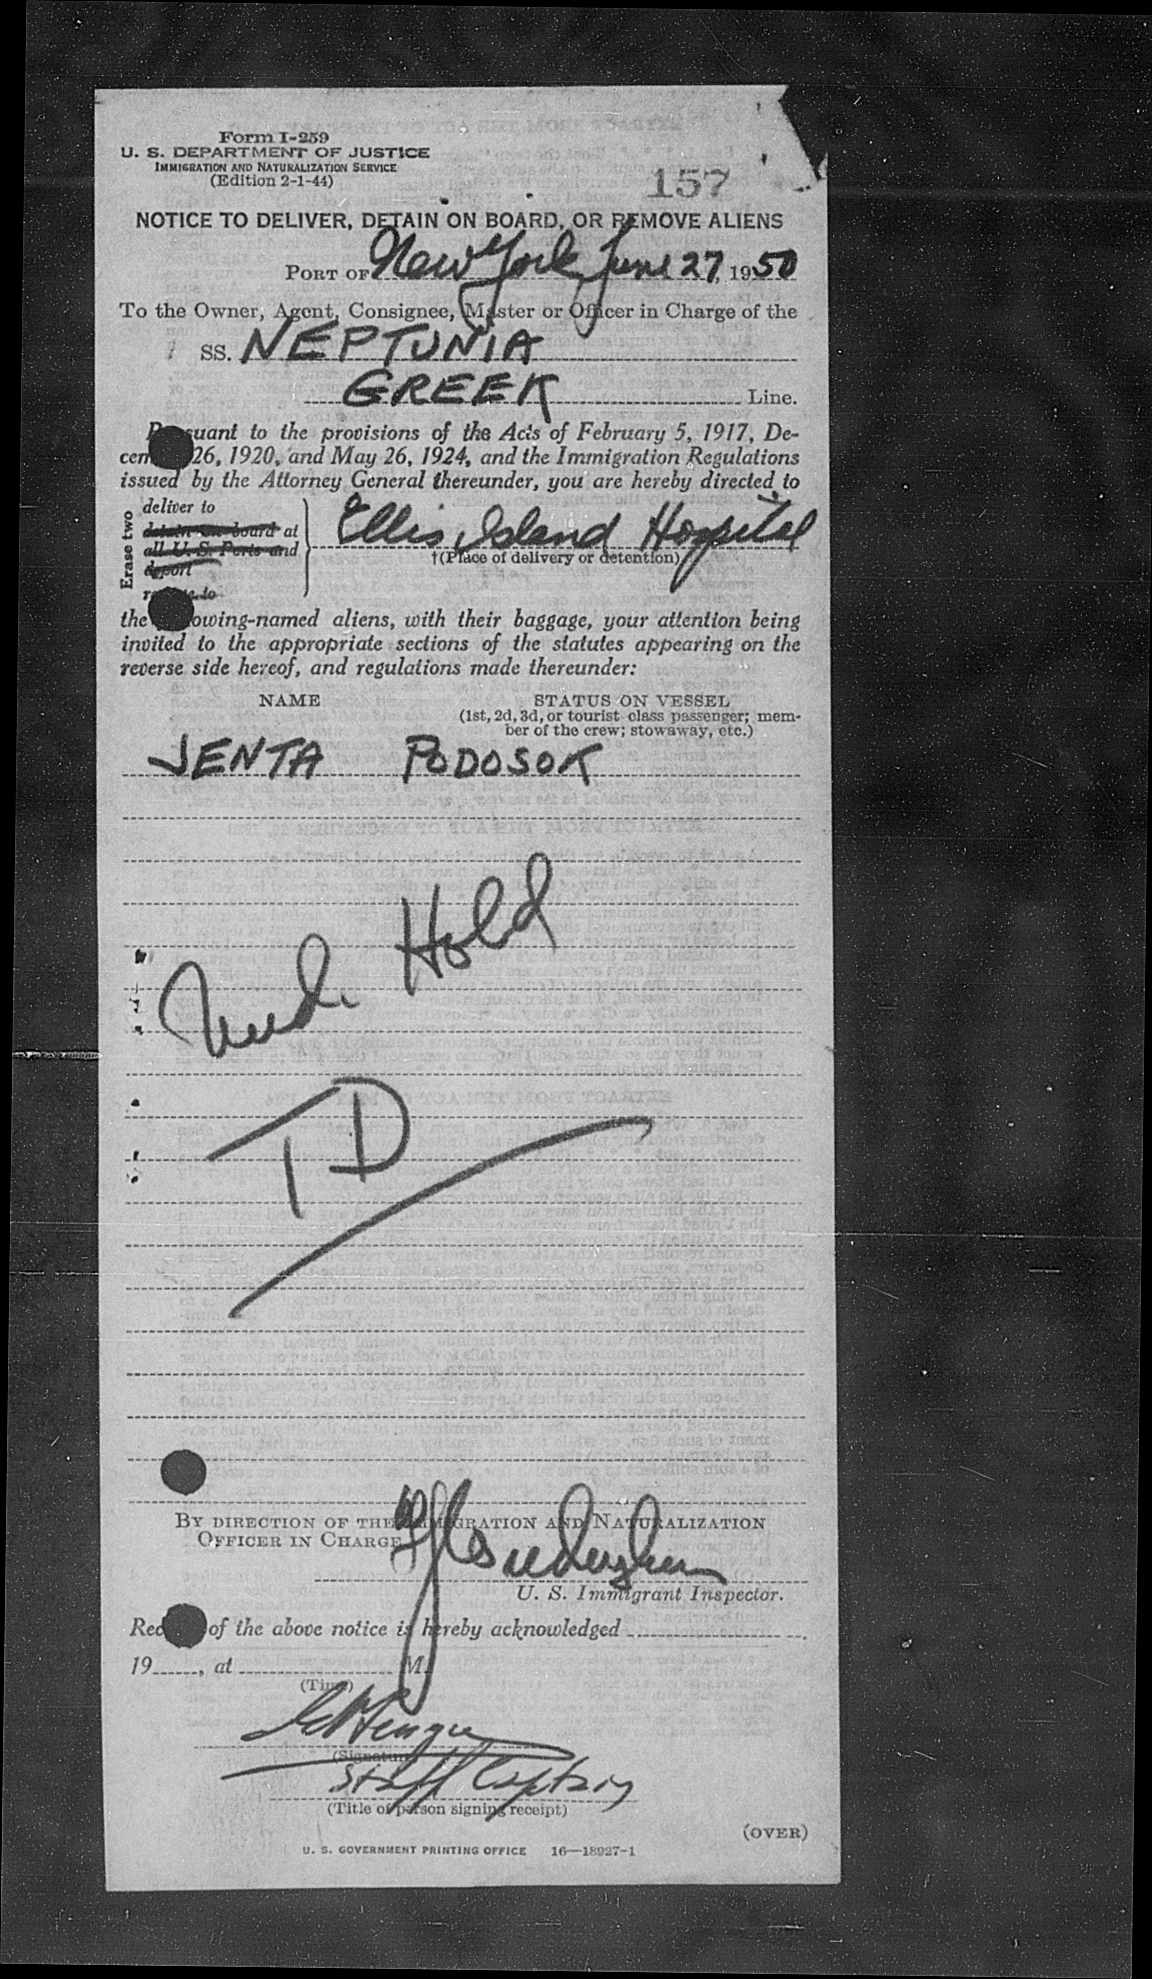 Form I-259
U. S. DEPARTMENT OF JUSTICE
IMMIGRATION AND NATURALIZATION SERVICE
(Edition 2-1-44)
157
NOTICE TO DELIVER, DETAIN ON BOARD, OR REMOVE ALIENS
PORT OF New York, June 27, 1950
To the Owner, Agent, Consignee, Master or Officer in Charge of the
SS. NEPTUNIA
GREEK Line.
Pursuant to the provisions of the Acts of February 5, 1917, De-
cem 26, 1920, and May 26, 1924, and the Immigration Regulations
issued by the Attorney General thereunder, you are hereby directed to
Erase two
deliver to
detain on board at
all U. S. Ports and
deport
to
Ellis Island Hospital
†(Place of delivery or detention)
the owing-named aliens, with their baggage, your attention being
invited to the appropriate sections of the statutes appearing on the
reverse side hereof, and regulations made thereunder:
NAME STATUS ON VESSEL
(1st, 2d, 3d, or tourist class passenger; mem-
ber of the crew; stowaway, etc.)
JENTA PODOSOK
Med. Hold
TD
BY DIRECTION OF THE IMMIGRATION AND NATURALIZATION
OFFICER IN CHARGE
U. S. Immigrant Inspector.
Rec of the above notice is hereby acknowledged
19 , at M.
(Time)
(Signature)
Staff Captain
(Title of person signing receipt)
(OVER)
U. S. GOVERNMENT PRINTING OFFICE 16—18927-1